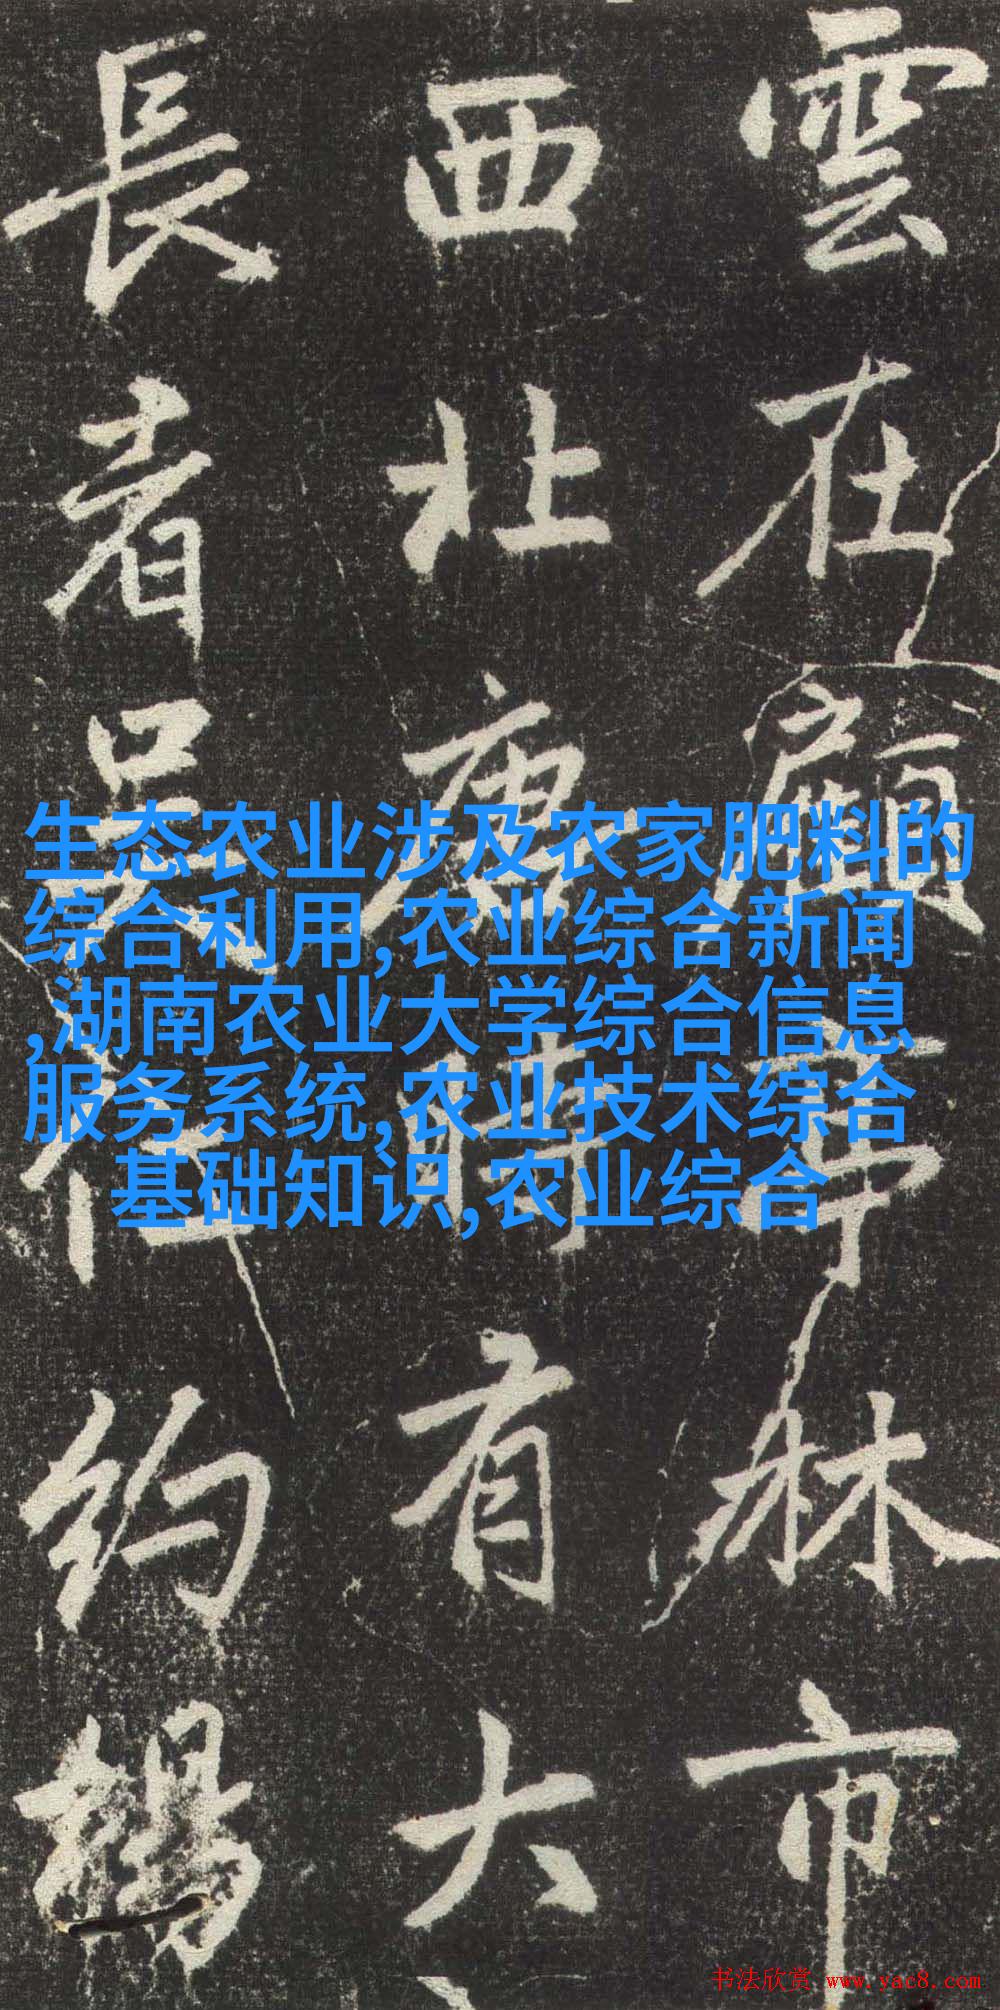 雲在顧亭林市
西北唐時有大
長者吳約
生态农业涉及农家肥料的
综合利用,农业综合新闻
,湖南农业大学综合信息
服务系统,农业技术综合
基础知识,农业综合
书法欣赏 www.yac8.com